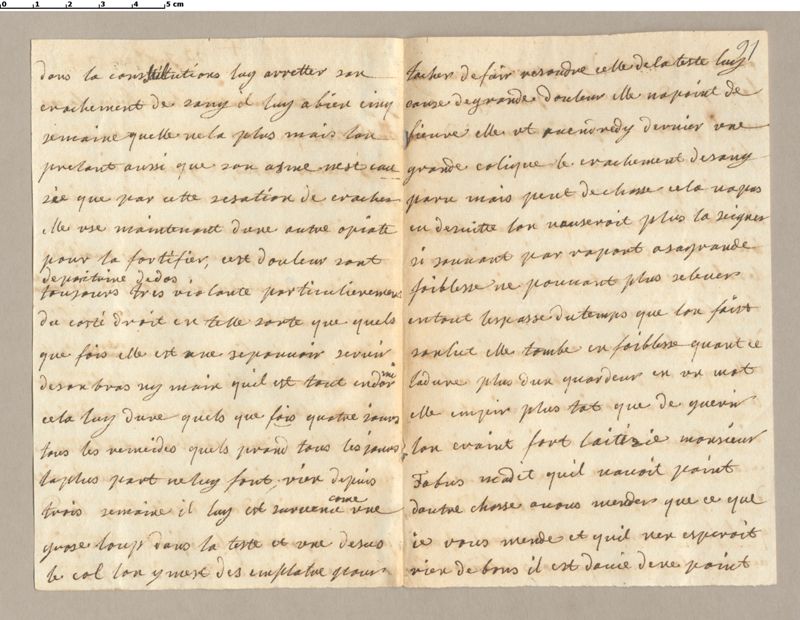 0 1 2 3 4 5 cm
dans la constitutions luy arretter son
crachement de sang il luy a bien cinq
semaine quelle ne la plus mais lon
pretant aussi que son asme nest cau
zée que par cette resation de cracher
elle use maintenant dune autre opiate
pour la fortifier, cest douleur sont
de poitrine
toujours tres violante particulierement
du costé droit en telle sorte que quels
que fois elle est a ne se pouvoir servir
de son bras ny main quil est tout endormi
cela luy dure quels que fois quatre jours
tous les remeides quels prand tous les jours
la plus part ne luy font rien depuis
trois semaine il luy est survenu come une
grose loup dans la teste et une desus
le col lon y mest des emplatre pour
91
tacher de fair resoudre celle de la teste luy
cause de grande douleur elle na point de
fieure elle ut vendredy dernier une
grande colique le crachement de sang
paru mais peut de chosse cela na pas
eu de suitte lon nauseroit plus la seigner
si souvant par raport a sa grande
foiblesse ne pouvant plus relever
en tout lespasse du temps que lon faist
son lict elle tombe en foiblesse quant ce
la dure plus dun quardeur en un mot
elle empir plus tot que de guerir
lon craint fort laitizie monsieur
Fabus ma dit quil navoit point
dautre chosse a vous mender que ce que
ie vous mende et quil nen esperoit
rien de bons il est davie de ne point